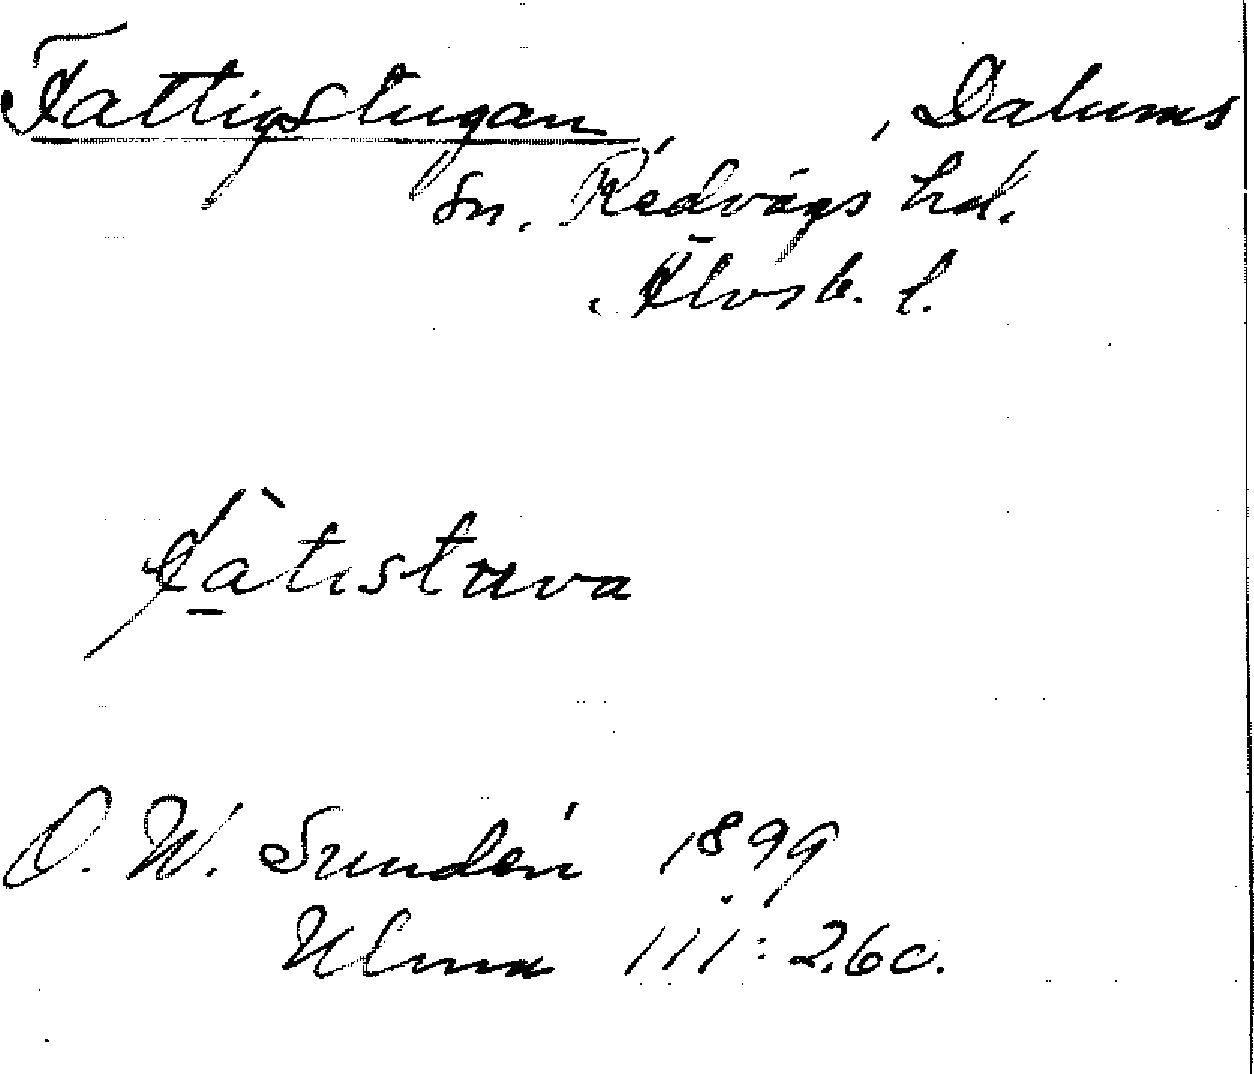 Fattigstugan, , Dalums
sn. Redvägs hd.
Älvsb. l.
fàtıstuva
D. W. Sundén 1899
Ulma 111:26c.